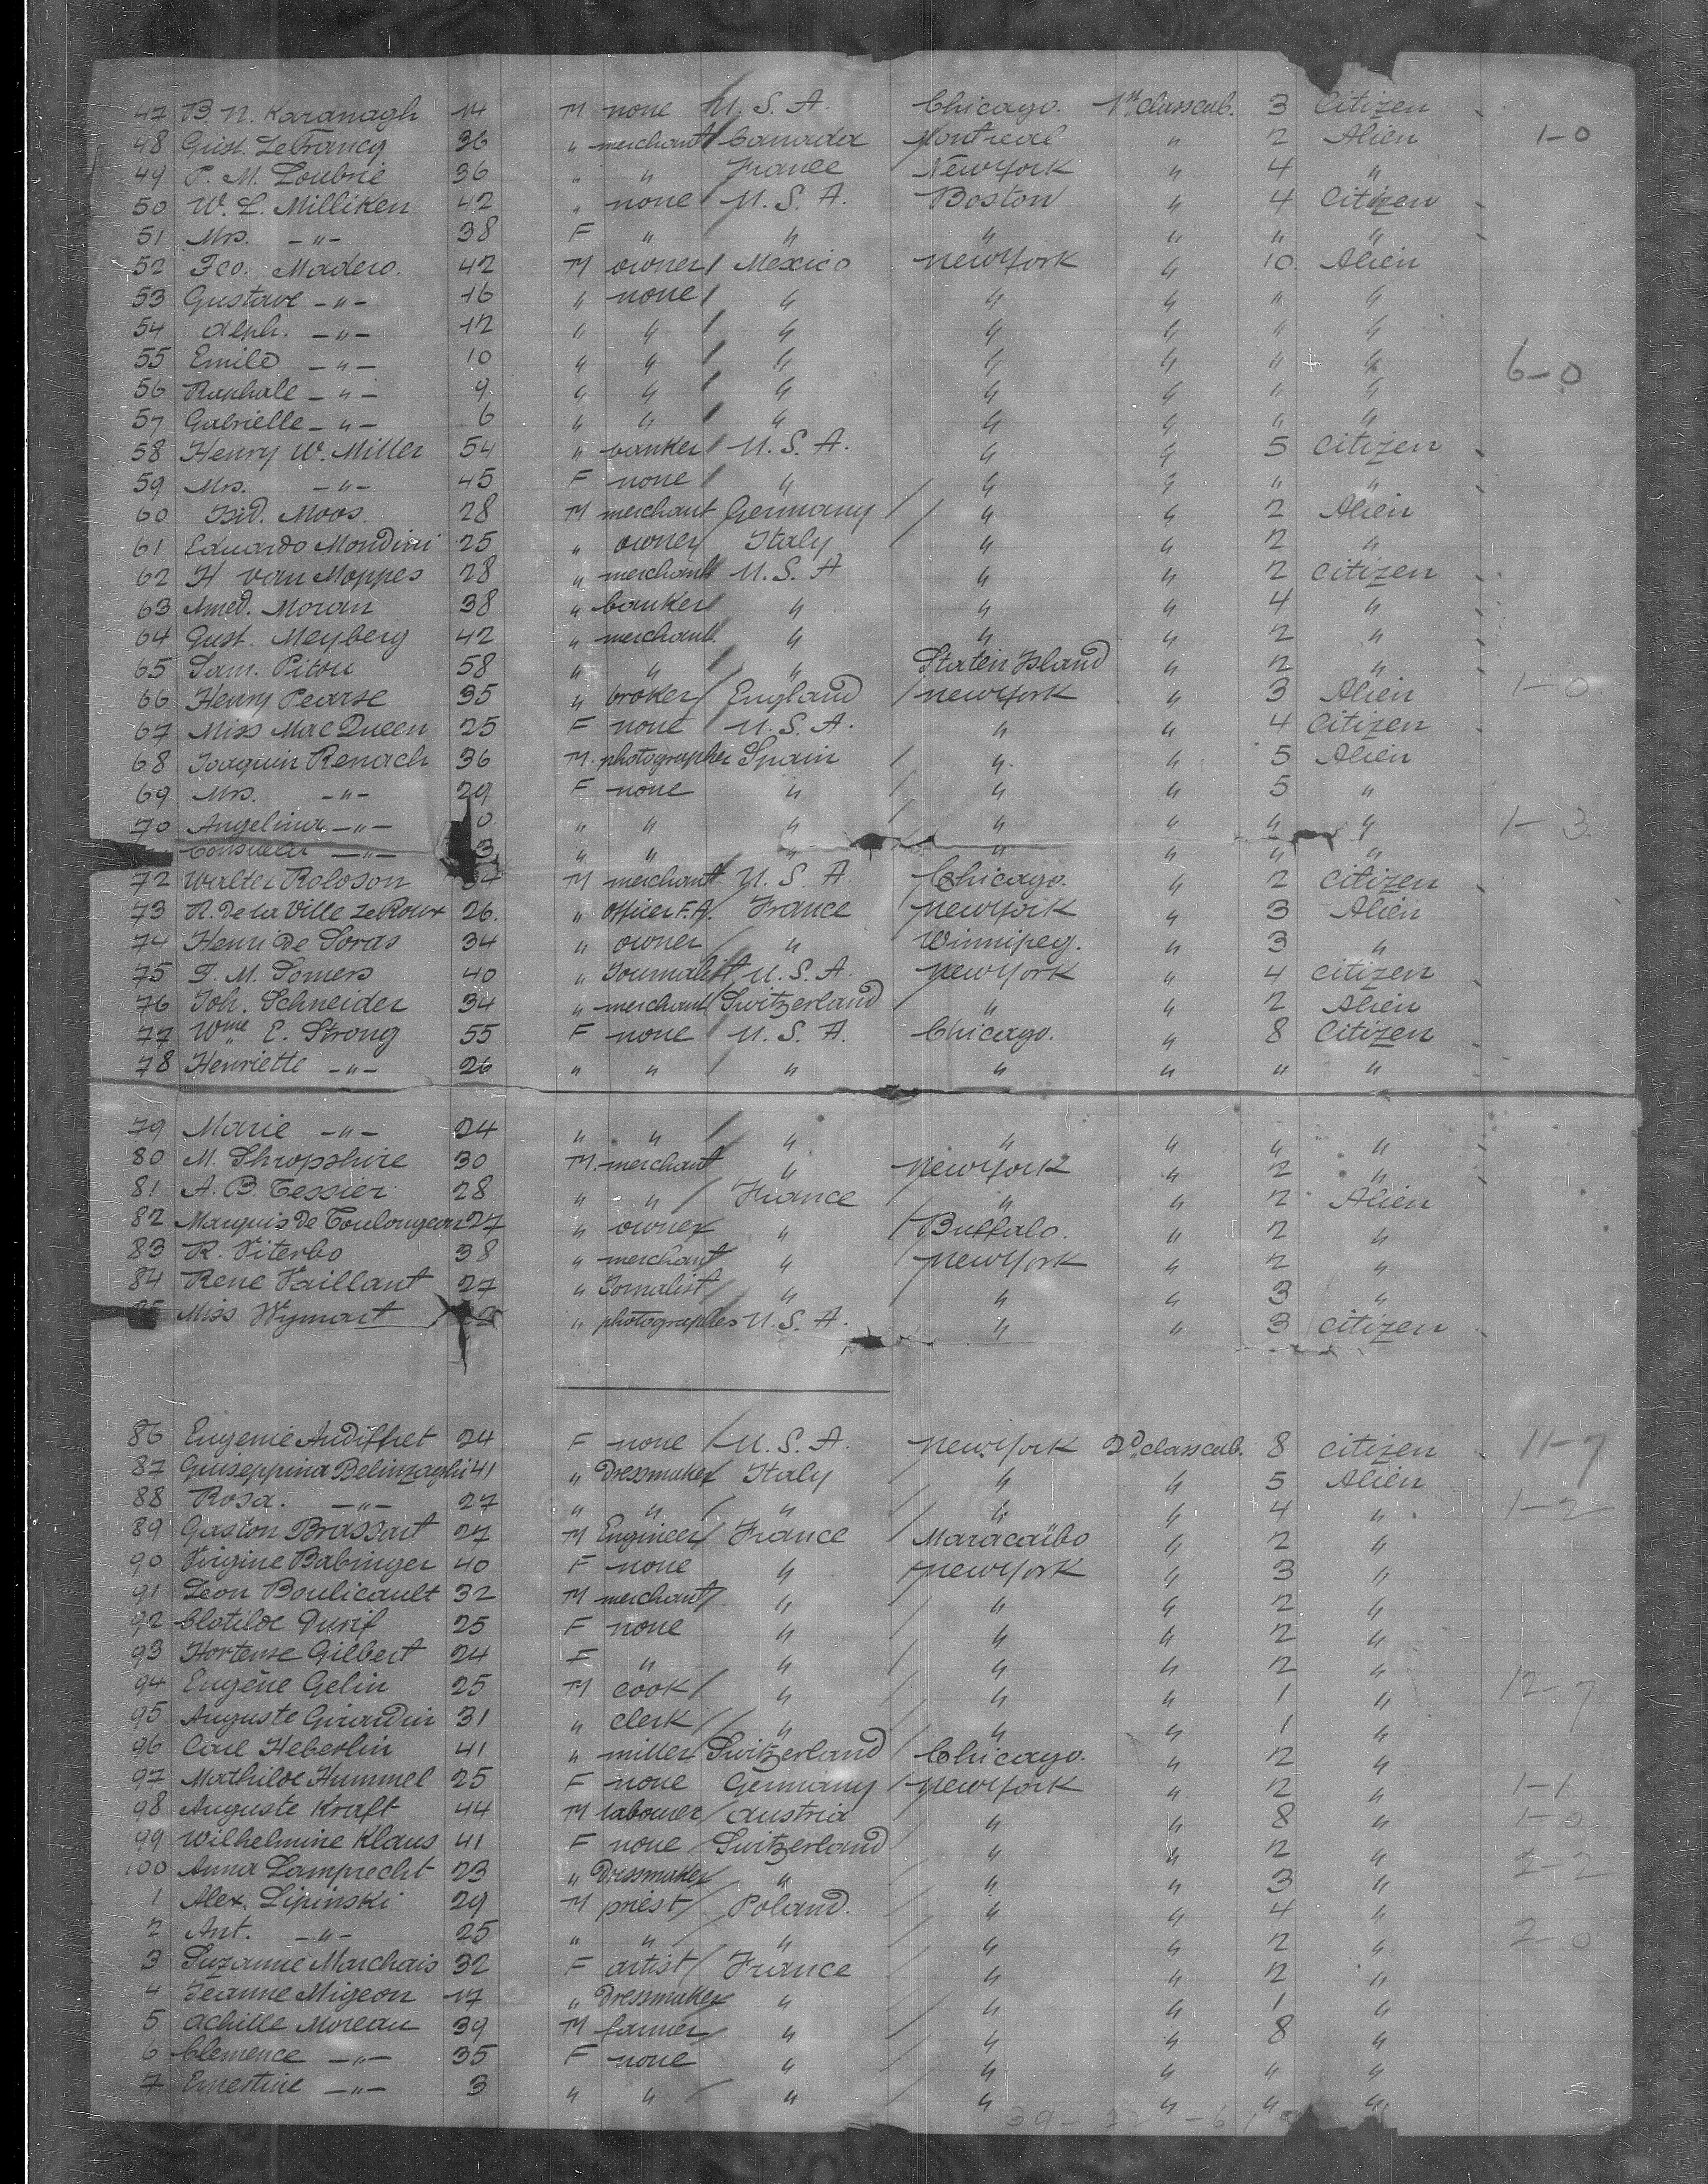 47 B. N. Kavanagh 14 M none U. S. A. Chicago. 1st class cab. 3 Citizen
48 Gust. LeFrancq 36 " merchant Canada Montreal " 2 Alien 1-0
49 P. M. Loubrie 36 " " France New York " 4 "
50 W. L. Milliken 42 " none U. S. A. Boston " 4 Citizen
51 Mrs. -"- 38 F " " " " " "
52 Fco. Madero. 42 M owner Mexico New York " 10 Alien
53 Gustave -"- 16 " none " " " " "
54 Alph. -"- 12 " " " " " " "
55 Emile -"- 10 " " " " " " " 6-0
56 Raphale -"- 9 " " " " " " "
57 Gabrielle -"- 6 " " " " " " "
58 Henry W. Miller 54 " banker U. S. A. " " 5 Citizen
59 Mrs. -"- 45 F none " " " " "
60 Isid. Moos 28 M merchant Germany " " 2 Alien
61 Eduardo Mondini 25 " owner Italy " " 2 "
62 H van Moppes 28 " merchant U. S. A " " 2 Citizen
63 Amed. Moran 38 " banker " " " 4 "
64 Gust. Meyberg 42 " merchant " " " 2 "
65 Sam. Pitou 58 " " " Staten Island " 2 "
66 Henry Pearse 35 " broker England New York " 3 Alien 1-0
67 Miss Mac Queen 25 F none U. S. A. " " 4 Citizen
68 Joaquin Renach 36 M. photographer Spain " " 5 Alien
69 Mrs. -"- 29 F none " " " 5 "
70 Angelina -"- " " " " " " " 1-3
-"- 3 " " " " " " "
72 Walter Roloson M merchant U. S. A Chicago. " 2 Citizen
73 R. De la Ville LeRoux 26. " officer F.A. France New York " 3 Alien
74 Henri De Soras 34 " owner " Winnipeg. " 3 "
75 F. M. Somers 40 " Journalist U. S. A. New York " 4 Citizen
76 Joh. Schneider 34 " merchant Switzerland " " 2 Alien
77 Wme E. Strong 55 F none U. S. A. Chicago. " 8 Citizen
78 Henriette -"- 26 " " " " " " "
79 Marie -"- 24 " " " " " " "
80 M. Shropshire 30 M. merchant " New York " 2 "
81 A. B. Tessier 28 " " France " " 2 Alien
82 Marquis De Toulongeon 27 " owner " Buffalo. " 2 "
83 R. Viterbo 38 " merchant " New York " 2 "
84 Rene Vaillant 27 " Jornalist " " " 3 "
Miss Wymart " photographer U. S. A. " " 3 Citizen
86 Eugenie Audiffret 24 F none U. S. A. New York 2d class cab. 8 Citizen 11-7
87 Giuseppina Belinzaghi 41 " Dressmaker Italy " " 5 Alien
88 Rosa. -"- 27 " " " " " 4 " 1-2
89 Gaston Brassart 27 M Engineer France Maracaïbo " 2 "
90 Virgine Babinger 40 F none " New York " 3 "
91 Leon Boulicault 32 M merchant " " " 2 "
92 Clotilde Durif 25 F none " " " 2 "
93 Hortense Gilbert 24 F " " " " 2 "
94 Eugène Gelin 25 M cook " " " 1 " 12-7
95 Auguste Girardin 31 " clerk " " " 1 "
96 Carl Heberlin 41 " miller Switzerland Chicago. " 2 "
97 Mathilde Hummel 25 F none Germany New York " 2 " 1-1
98 Auguste Kraft 44 M labourer Austria " " 8 " 1-0
99 Wilhelmine Klaus 41 F none Switzerland " " 2 "
100 Anna Lamprecht 23 " Dressmaker " " " 3 " 2-2
1 Alex. Lipinski 29 M priest Poland. " " 4 "
2 Ant. -"- 25 " " " " " 2 " 2-0
3 Suzanne Marchais 32 F artist France " " 2 "
4 Jeanne Migeon 17 " Dressmaker " " " 1 "
5 Achille Moreau 39 M farmer " " " 8 "
6 Clemence -"- 35 F none " " " " "
7 Ernestine -"- 3 " " " " " " "